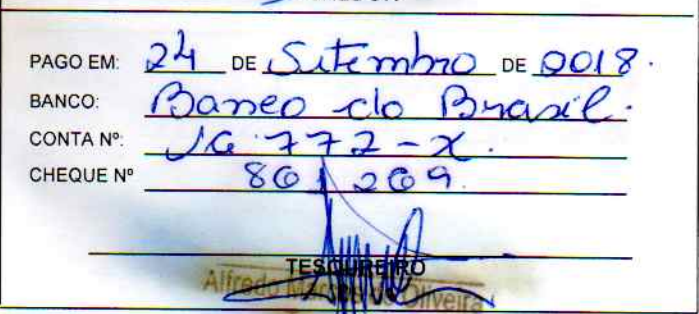 PAGO EM: 24 DE Setembro DE 2018.
BANCO: Banco do Brasil.
CONTA Nº: 16.772-X.
CHEQUE Nº 801269
TESOUREIRO
Alfredo Oliveira